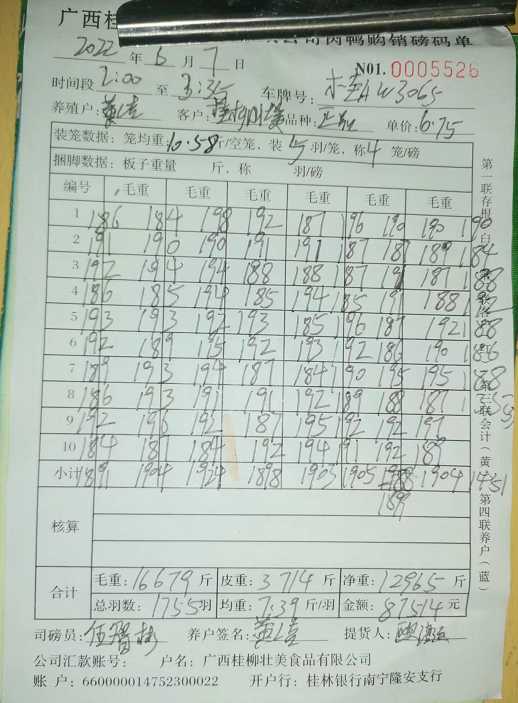 广西桂
公司肉鸭购销磅码单
2022 年 6 月 7 日
N01.0005526
时间段 2:00 至 3:35 车牌号: 桂A W3065
养殖户: 客户: 品种: 单价: 6.75
装笼数据: 笼均重: 10.58斤/空笼, 装 5 羽/笼, 称 4 笼/磅
捆脚数据: 板子重量 斤, 称 羽/磅
编号 毛重 毛重 毛重 毛重 毛重 毛重
1 186 184 198 192 187 196 190 190 190
2 191 190 190 191 191 187 187 189 184
3 192 194 194 188 188 187 191 187 188
4 186 185 194 185 194 185 191 188
5 193 193 192 193 185 196 187 192 188
6 192 189 195 192 193 192 186 190 186
7 189 193 194 187 184 190 195 195 188
8 186 193 191 191 192 189 188 187
9 192 196 192 187 195 192 192 197
10 184 187 184 192 194 191 192 189
小计 1891 1904 1924 1898 1903 1905 1904 1451
189
核算
合计 毛重: 16679 斤 皮重: 3714 斤 净重: 12965 斤
总羽数: 1755 羽 均重: 7.39 斤/羽 金额: 87514 元
司磅员: 养户签名: 提货人:
公司汇款账号: 户名: 广西桂柳壮美食品有限公司
账 户: 660000014752300022 开户行: 桂林银行南宁隆安支行
第一联存根(白
联会计(黄
第四联养户(蓝)